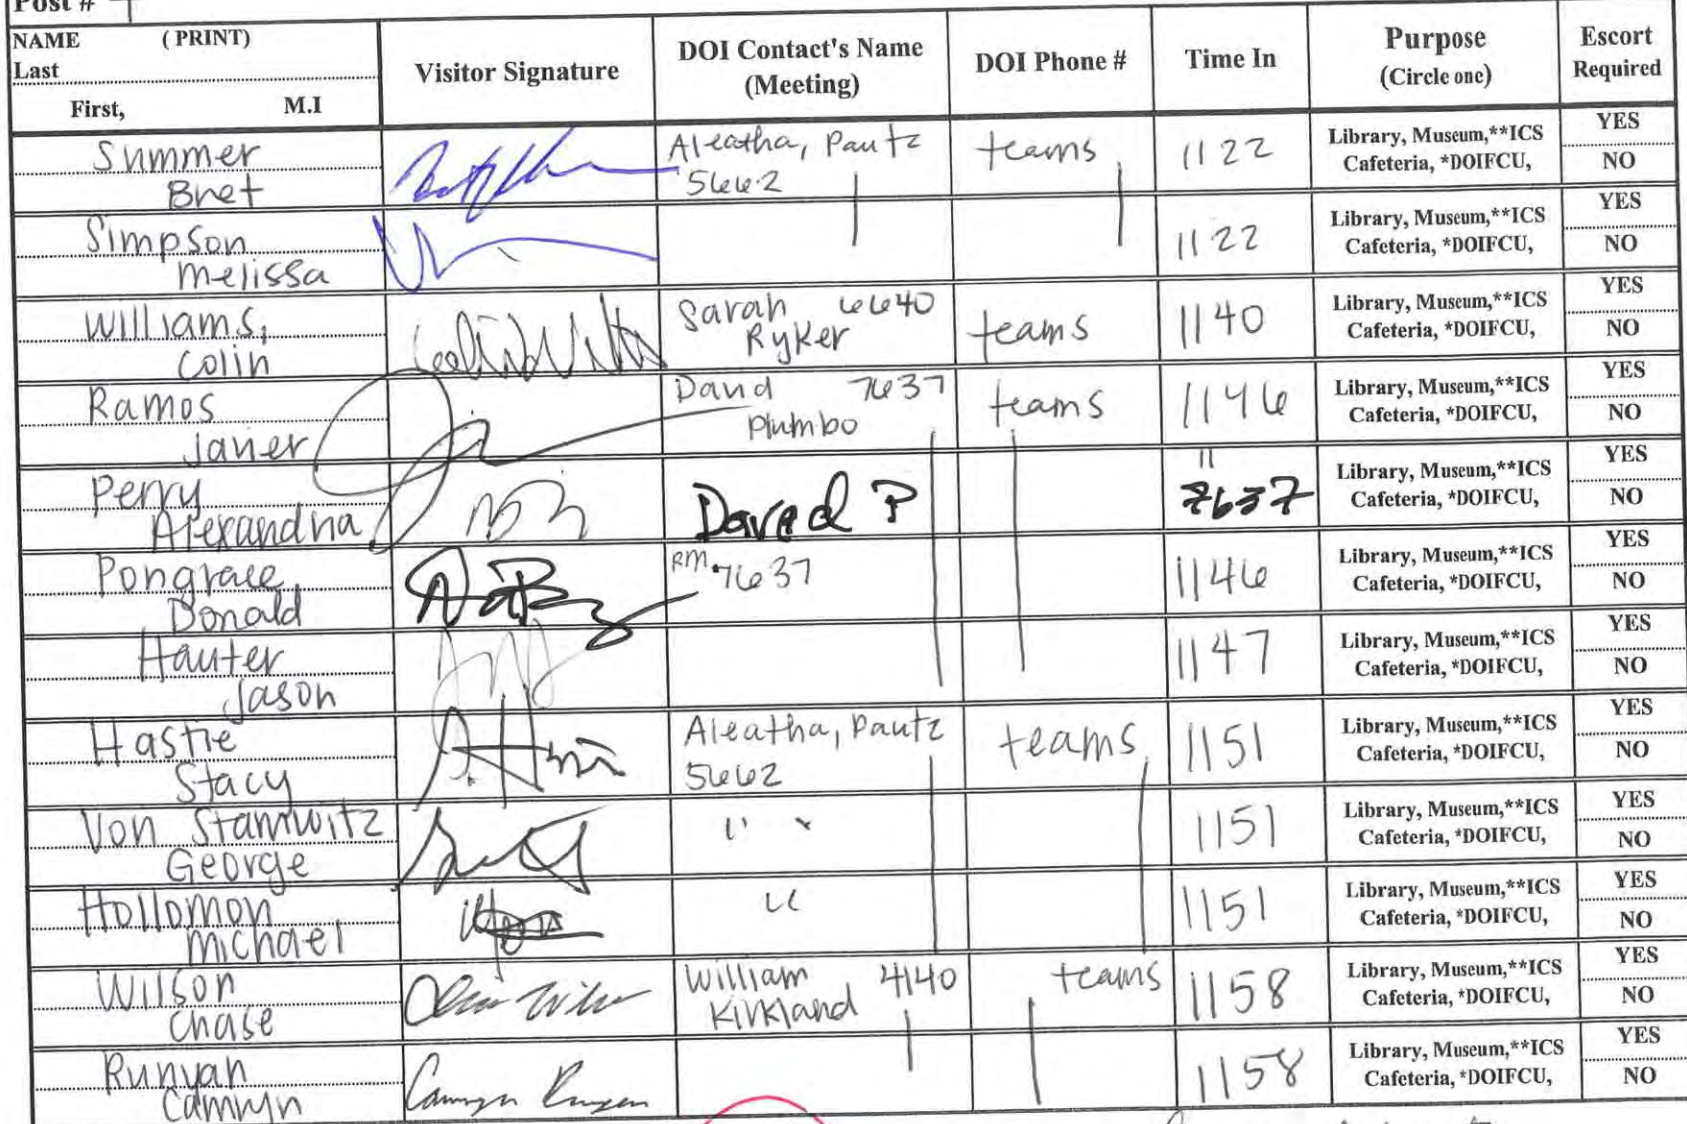 Post #
NAME (PRINT)
Last
First, M.I
Visitor Signature
DOI Contact's Name
(Meeting)
DOI Phone #
Time In
Purpose
(Circle one)
Escort
Required
Summer
Bret
Aleatha, Pautz
5662
teams
1122
Library, Museum,**ICS
Cafeteria, *DOIFCU,
YES
NO
Simpson
Melissa
1122
Library, Museum,**ICS
Cafeteria, *DOIFCU,
YES
NO
Williams,
Colin
Sarah 6640
Ryker
teams
1140
Library, Museum,**ICS
Cafeteria, *DOIFCU,
YES
NO
Ramos
Javier
David 7637
Plumbo
teams
1146
Library, Museum,**ICS
Cafeteria, *DOIFCU,
YES
NO
Perry
Alexandria
David P
11
7637
Library, Museum,**ICS
Cafeteria, *DOIFCU,
YES
NO
Pongrace
Donald
RM. 7637
1146
Library, Museum,**ICS
Cafeteria, *DOIFCU,
YES
NO
Hauter
Jason
1147
Library, Museum,**ICS
Cafeteria, *DOIFCU,
YES
NO
Hastie
Stacy
Aleatha, Pautz
5662
teams
1151
Library, Museum,**ICS
Cafeteria, *DOIFCU,
YES
NO
Von Stamwitz
George
" "
1151
Library, Museum,**ICS
Cafeteria, *DOIFCU,
YES
NO
Hollomon
Michael
"
1151
Library, Museum,**ICS
Cafeteria, *DOIFCU,
YES
NO
Wilson
Chase
William 4140
Kirkland
teams
1158
Library, Museum,**ICS
Cafeteria, *DOIFCU,
YES
NO
Runyan
Camryn
Camryn Runyan
1158
Library, Museum,**ICS
Cafeteria, *DOIFCU,
YES
NO